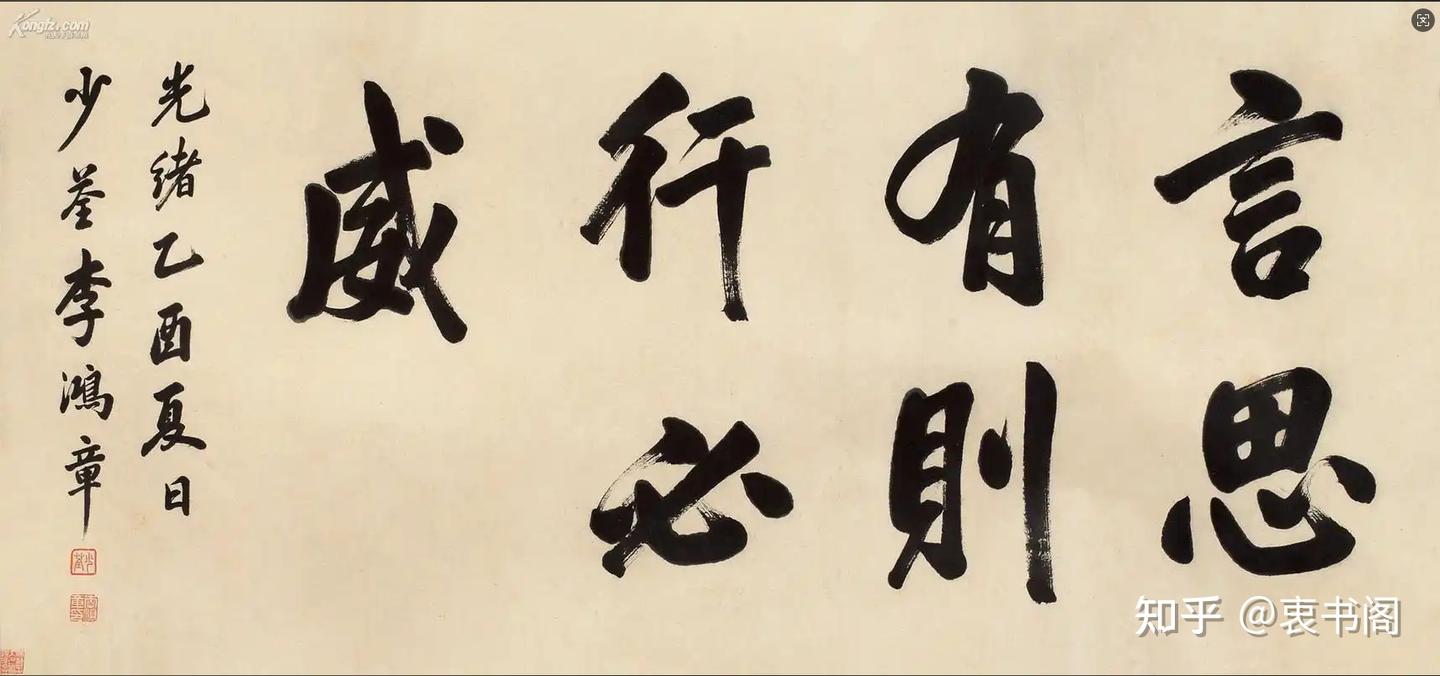 言思
有則
行必
威
光緒乙酉夏日
少荃李鴻章
少荃
Kongfz.com
知乎 @衷书阁